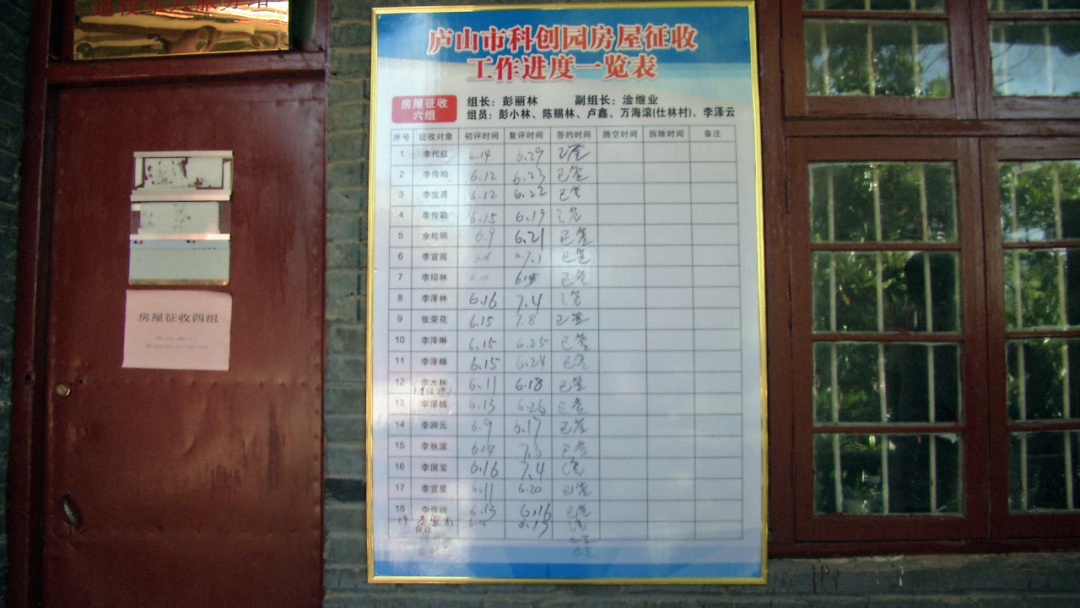 房屋征收四组
庐山市科创园房屋征收
工作进度一览表
房屋征收
六组
组长：彭丽林 副组长：淦继业
组员：彭小林、陈赐林、卢鑫、万海滨(仕林村)、李泽云
序号 征收对象 初评时间 复评时间 签约时间 腾空时间 拆除时间 备注
1 李代红 6.14 6.29 已签
2 李传柏 6.12 6.23 已签
3 李宜勇 6.12 6.22 已签
4 6.15 6.19 已签
5 余松炳 6.9 6.21 已签
6 7.1 已签
7 李印林 已签
8 李泽林 6.16 7.4 已签
9 张荣花 6.15 7.8 已签
10 李泽琳 6.15 6.25 已签
11 李泽樟 6.15 6.24 已签
12 李木林 6.11 6.18 已签
13 6.13 6.26 已签
14 李润元 6.9 6.17 已签
15 李秋滨 6.14 已签
16 李国宝 6.16 7.4 已签
17 李宜星 6.11 6.20 已签
18 6.13 6.16 已签
6.13